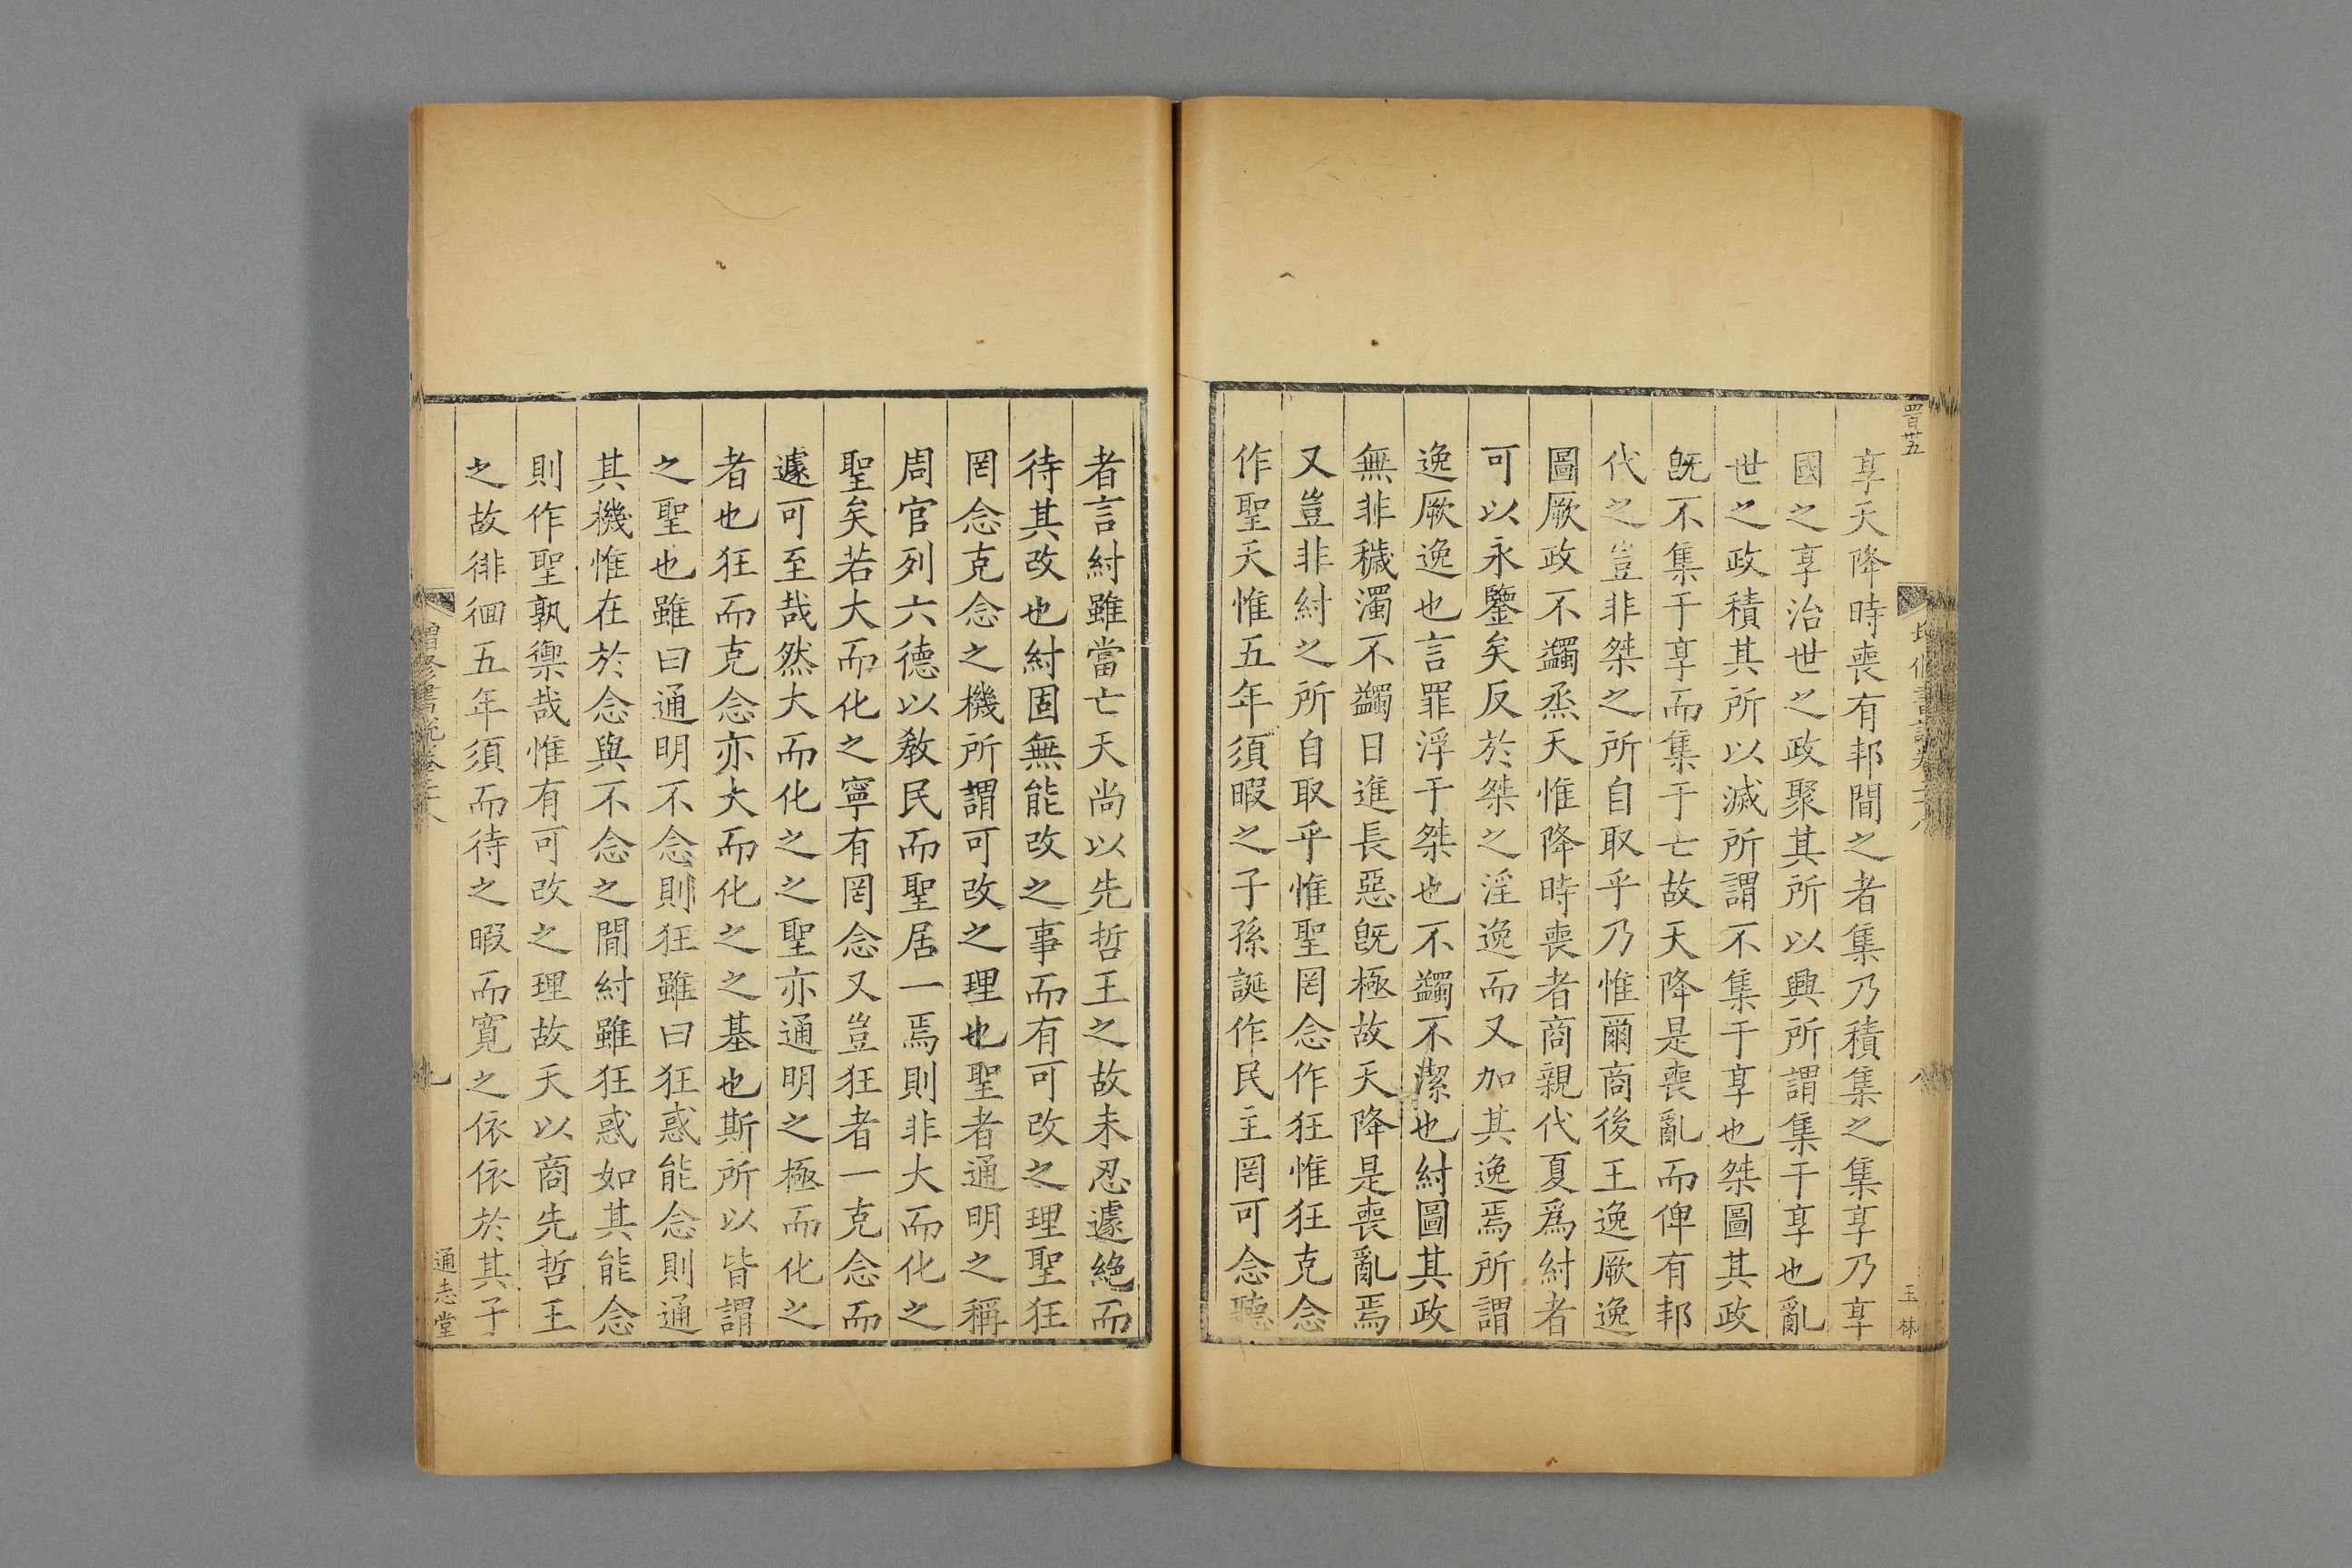 享天降時喪有邦間之者集乃積集之集享乃享
國之享治世之政聚其所以興所謂集于享也亂
世之政積其所以滅所謂不集于享也桀圖其政
旣不集于享而集于亡故天降是喪亂而俾有邦
代之豈非桀之所自取乎乃惟爾商後王逸厥逸
圖厥政不蠲烝天惟降時喪者商親代夏爲紂者
可以永鑒矣反於桀之淫逸而又加其逸焉所謂
逸厥逸也言罪浮于桀也不蠲不潔也紂圖其政
無非穢濁不蠲日進長惡旣極故天降是喪亂焉
又豈非紂之所自取乎惟聖罔念作狂惟狂克念
作聖天惟五年須暇之子孫誕作民主罔可念聽
者言紂雖當亡天尚以先哲王之故未忍遽絶而
待其改也紂固無能改之事而有可改之理聖狂
罔念克念之機所謂可改之理也聖者通明之稱
周官列六德以敎民而聖居一焉則非大而化之
聖矣若大而化之寧有罔念又豈狂者一克念而
遽可至哉然大而化之之聖亦通明之極而化之
者也狂而克念亦大而化之之基也斯所以皆謂
之聖也雖曰通明不念則狂雖曰狂惑能念則通
其機惟在於念與不念之間紂雖狂惑如其能念
則作聖孰禦哉惟有可改之理故天以商先哲王
之故徘徊五年須而待之暇而寬之依依於其子
增修書說卷二十八
九
通志堂